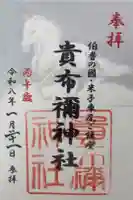 奉拝
伯耆の國・米子車尾・鎮守
貴布禰神社
丙午歳
令和八年一月二十一日参拝
貴布禰神社